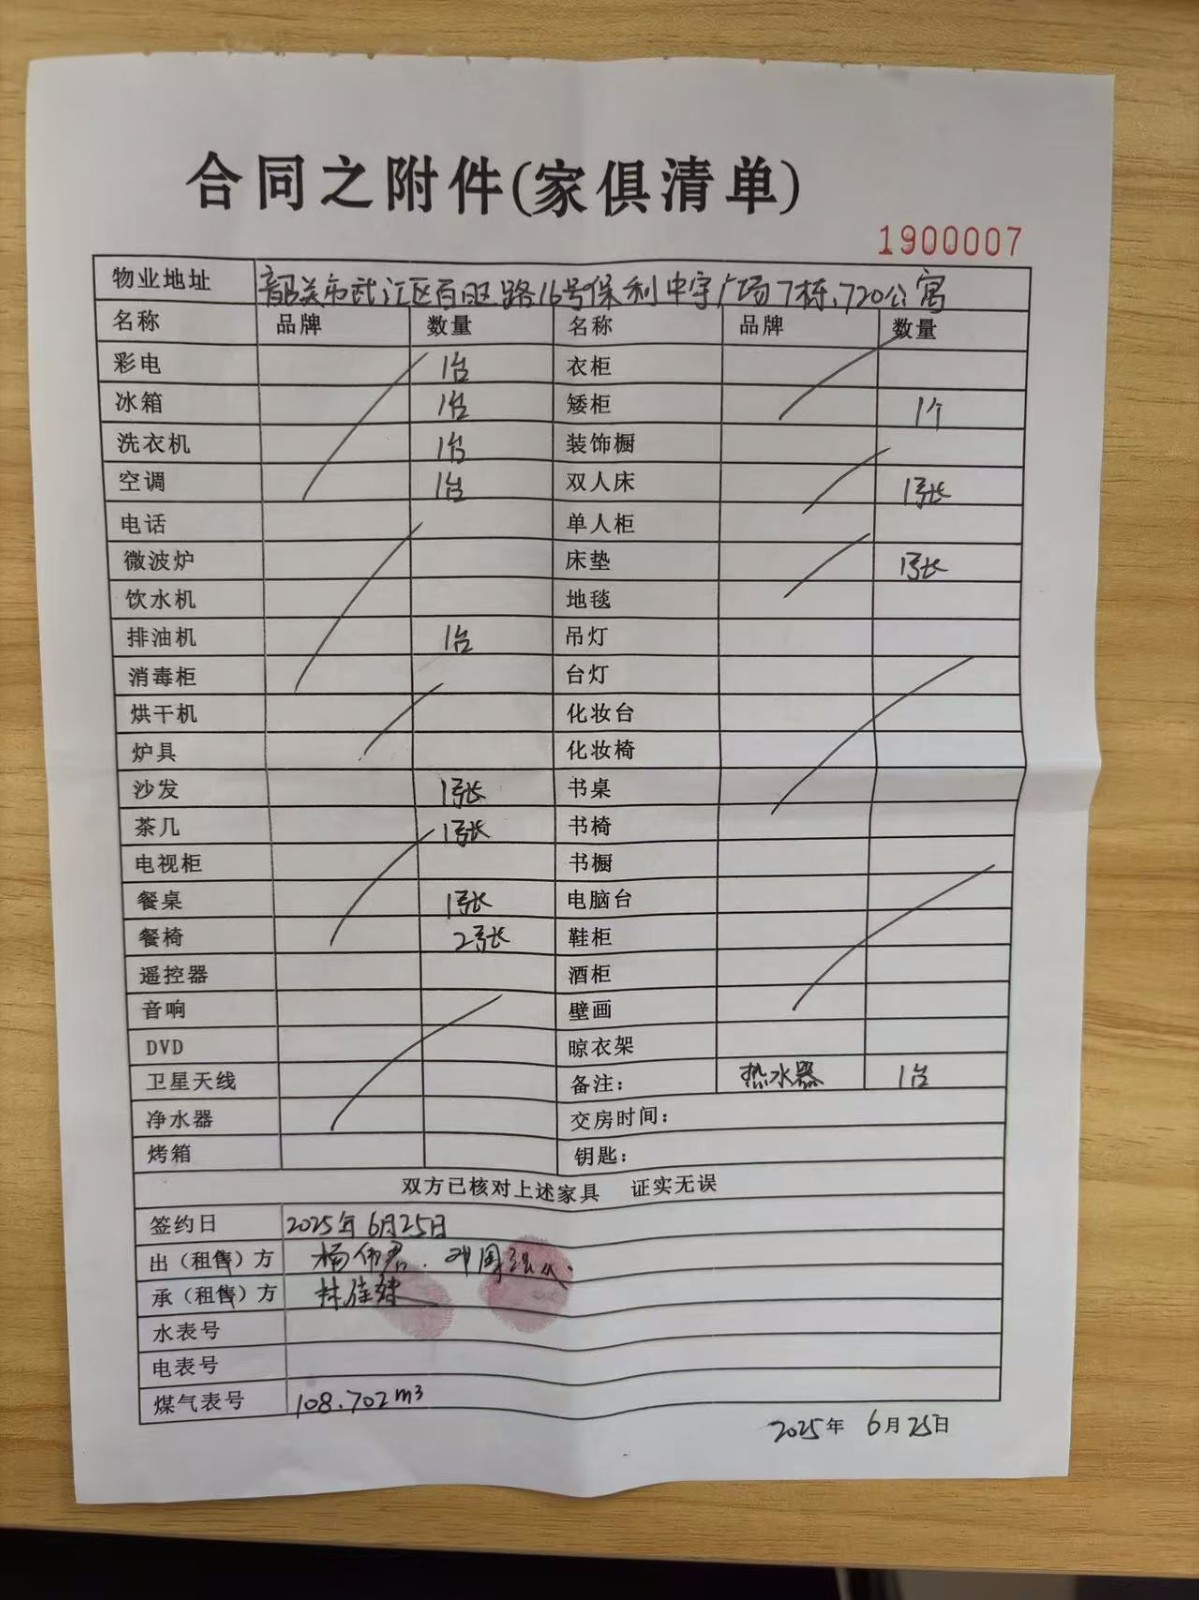 合同之附件(家俱清单)
1900007
物业地址 韶关市武江区百旺路16号保利中宇广场7栋、720公寓
名称 品牌 数量 名称 品牌 数量
彩电 1台 衣柜
冰箱 1台 矮柜 1个
洗衣机 1台 装饰橱
空调 1台 双人床 1张
电话 单人柜
微波炉 床垫 1张
饮水机 地毯
排油机 1台 吊灯
消毒柜 台灯
烘干机 化妆台
炉具 化妆椅
沙发 1张 书桌
茶几 1张 书椅
电视柜 书橱
餐桌 1张 电脑台
餐椅 2张 鞋柜
遥控器 酒柜
音响 壁画
DVD 晾衣架
卫星天线 备注： 热水器 1台
净水器 交房时间：
烤箱 钥匙：
双方已核对上述家具 证实无误
签约日 2025年6月25日
出（租售）方 杨伟君
承（租售）方 林佳
水表号
电表号
煤气表号 108.702m³
2025年 6月25日